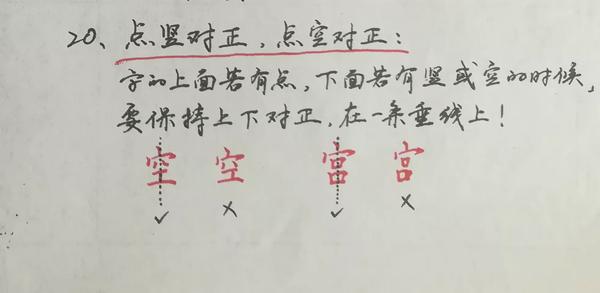 20、点竖对正，点空对正：
字的上面若有点，下面若有竖或空的时候，
要保持上下对正，在一条垂线上！
空 空 宫 宫
✓ × ✓ ×